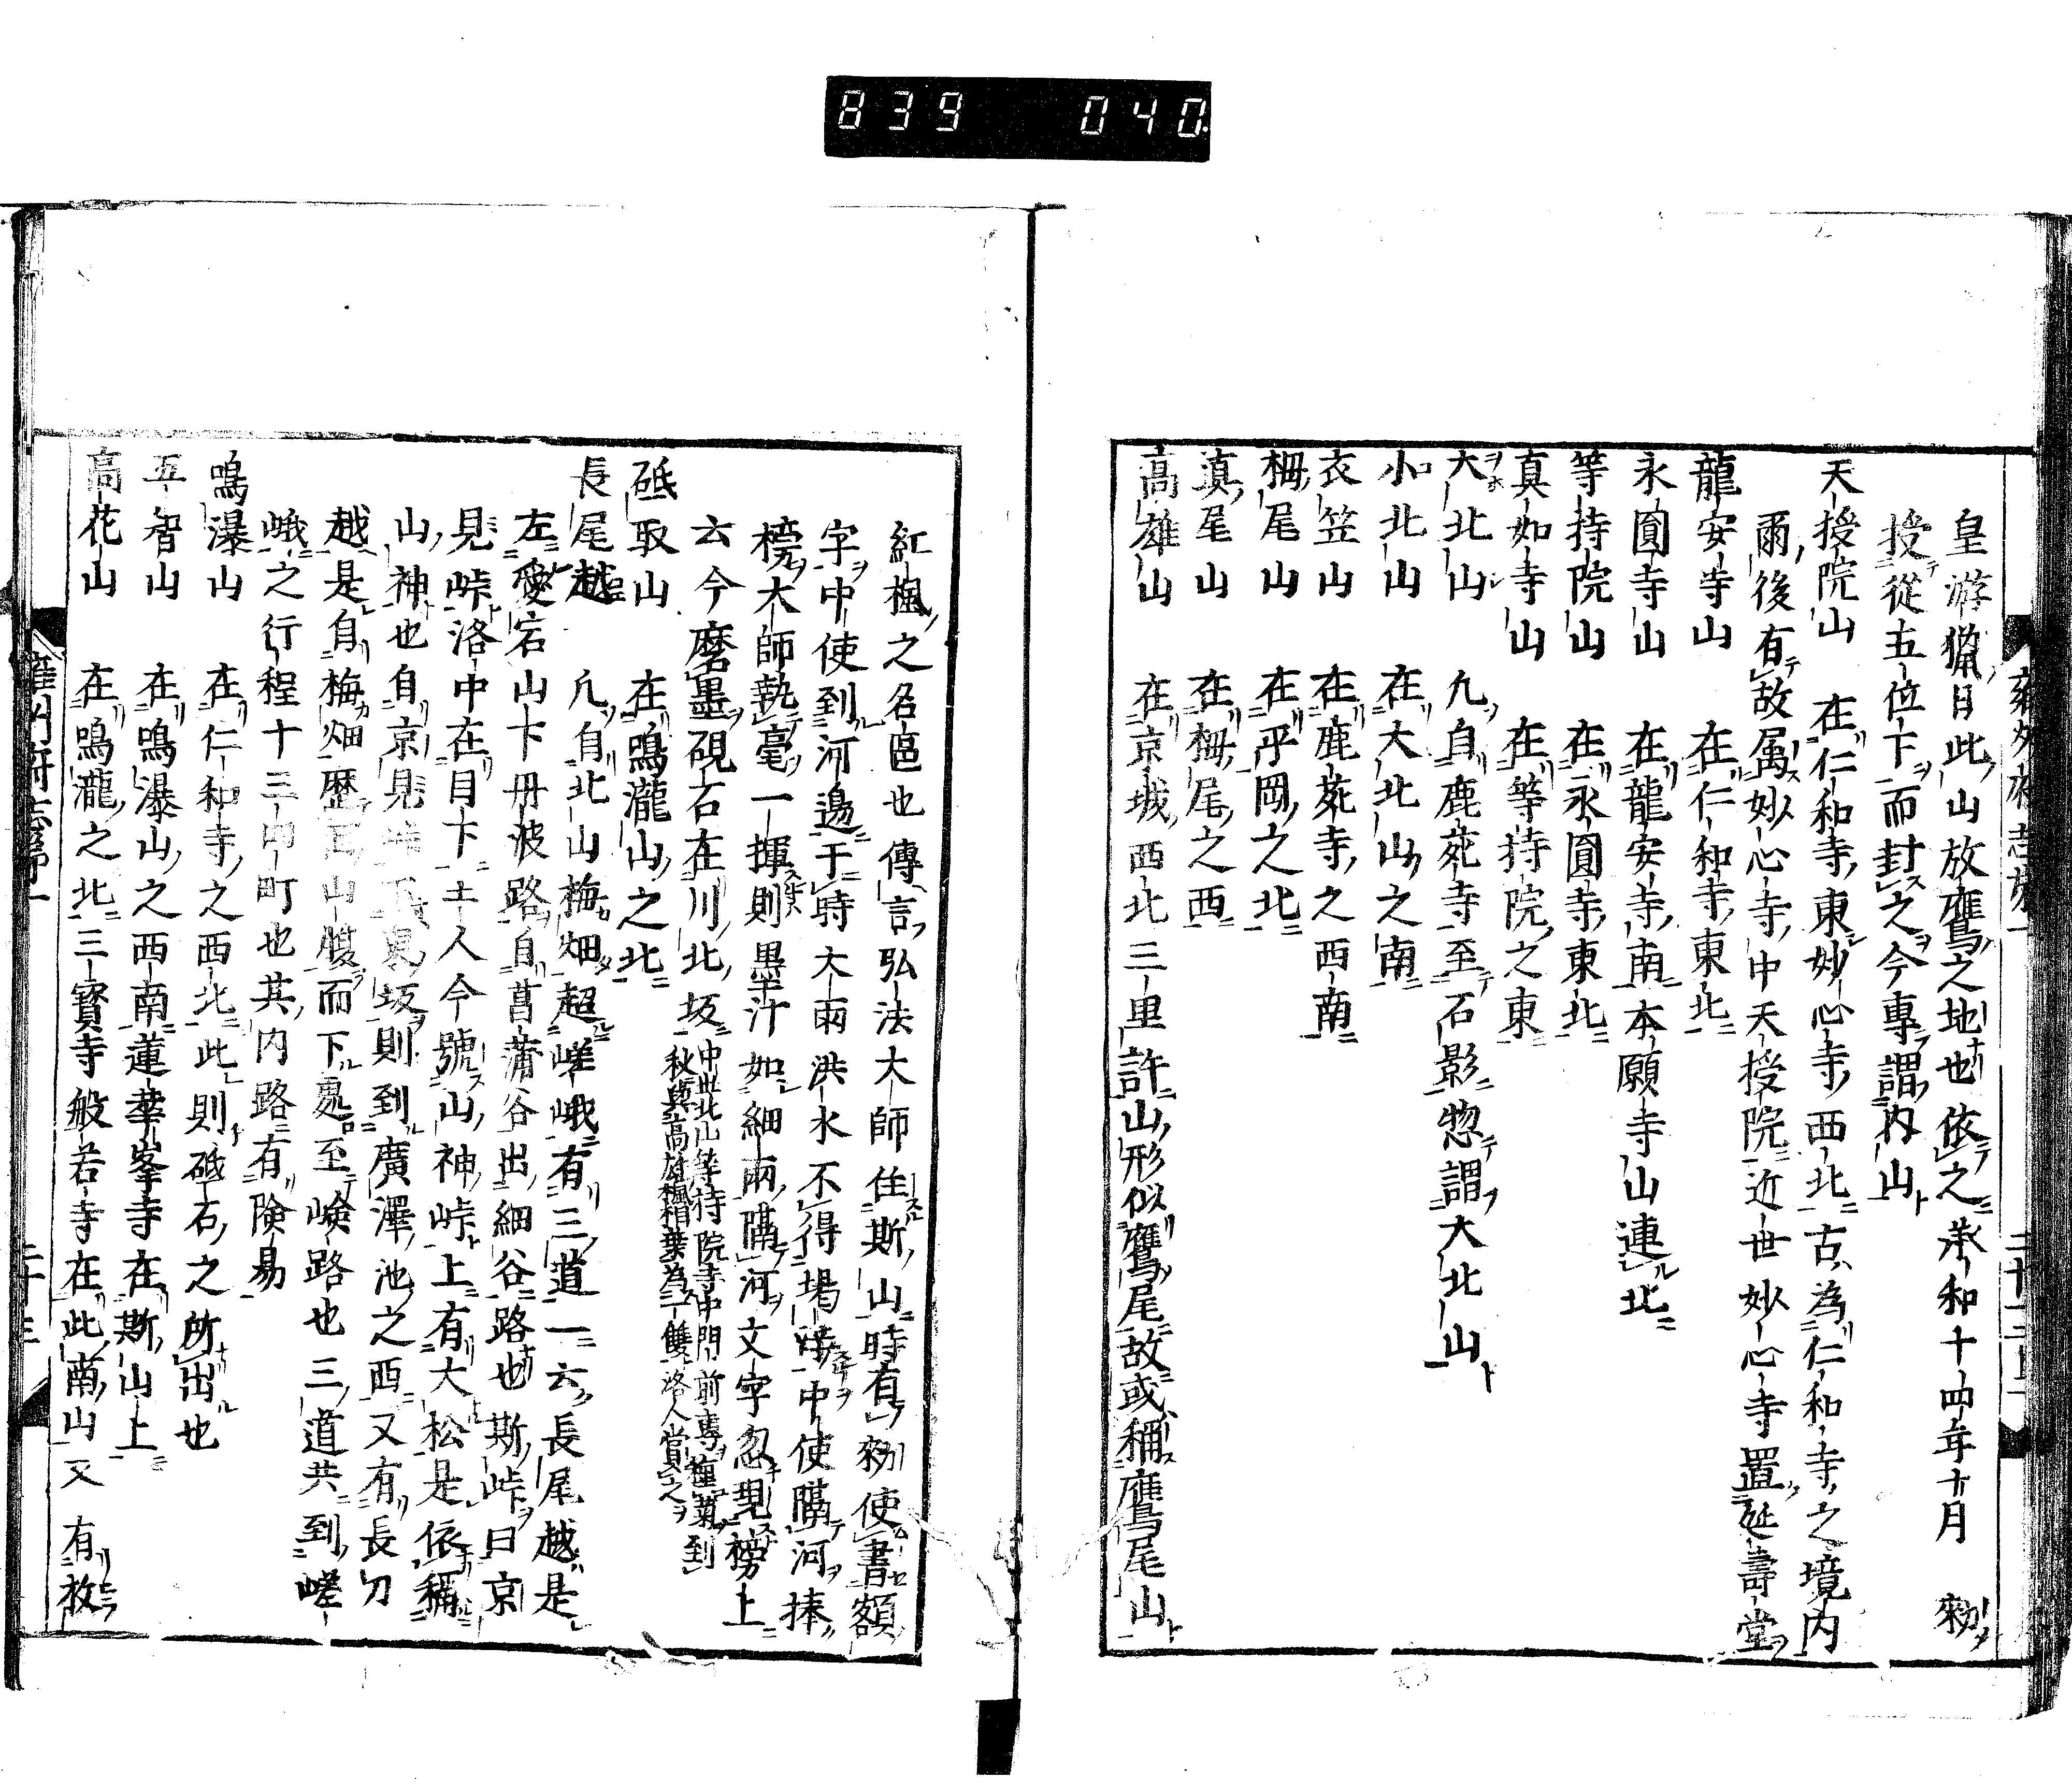 839 040
皇游猟日此山放鷹之地也依之承和十四年十月 勅
授從五位下而封之今專謂内山
天授院山 在仁和寺東妙心寺西北古為仁和寺之境内
爾後有故属妙心寺中天授院近世妙心寺置延壽堂
龍安寺山 在仁和寺東北
永圓寺山 在龍安寺南本願寺山連北
等持院山 在永圓寺東北
真如寺山 在等持院之東
大北山 九自鹿菀寺至石影惣謂大北山
小北山 在大北山之南
衣笠山 在鹿菀寺之西南
栂尾山 在平岡之北
槙尾山 在栂尾之西
高雄山 在京城西北三里許山形似鷹尾故或稱鷹尾山
紅楓之名區也傳言弘法大師住斯山時有勅使書額
字中使到河邊于時大雨洪水不得場中使隔河捧
榜大師執毫一揮則墨汁如細雨隔河文字忽現榜上
云今磨墨硯石在川北坂中世北山等持院寺中門前專種菊到
秋與高雄楓相並為一雙洛人賞之
砥取山 在鳴瀧山之北
長尾越 九自北山梅畑超嵯峨有三道一云長尾越是
左愛宕山下丹波路自菖蒲谷出細谷路也斯峠曰京
見峠洛中在目下土人今號山神峠上有大松是依稱
山神也自京見峠下東坂則到廣澤池之西又有長刀
越是自梅畑歴山腹而下處至嶮路也三道共到嵯
峨之行程十三四町也其内路有険易
鳴瀑山 在仁和寺之西北此則砥石之所出也
五智山 在鳴瀑山之西南蓮華峯寺在斯山上
高花山 在鳴瀧之北三寳寺般若寺在此南山又有枚
雍州府志第一
二十三